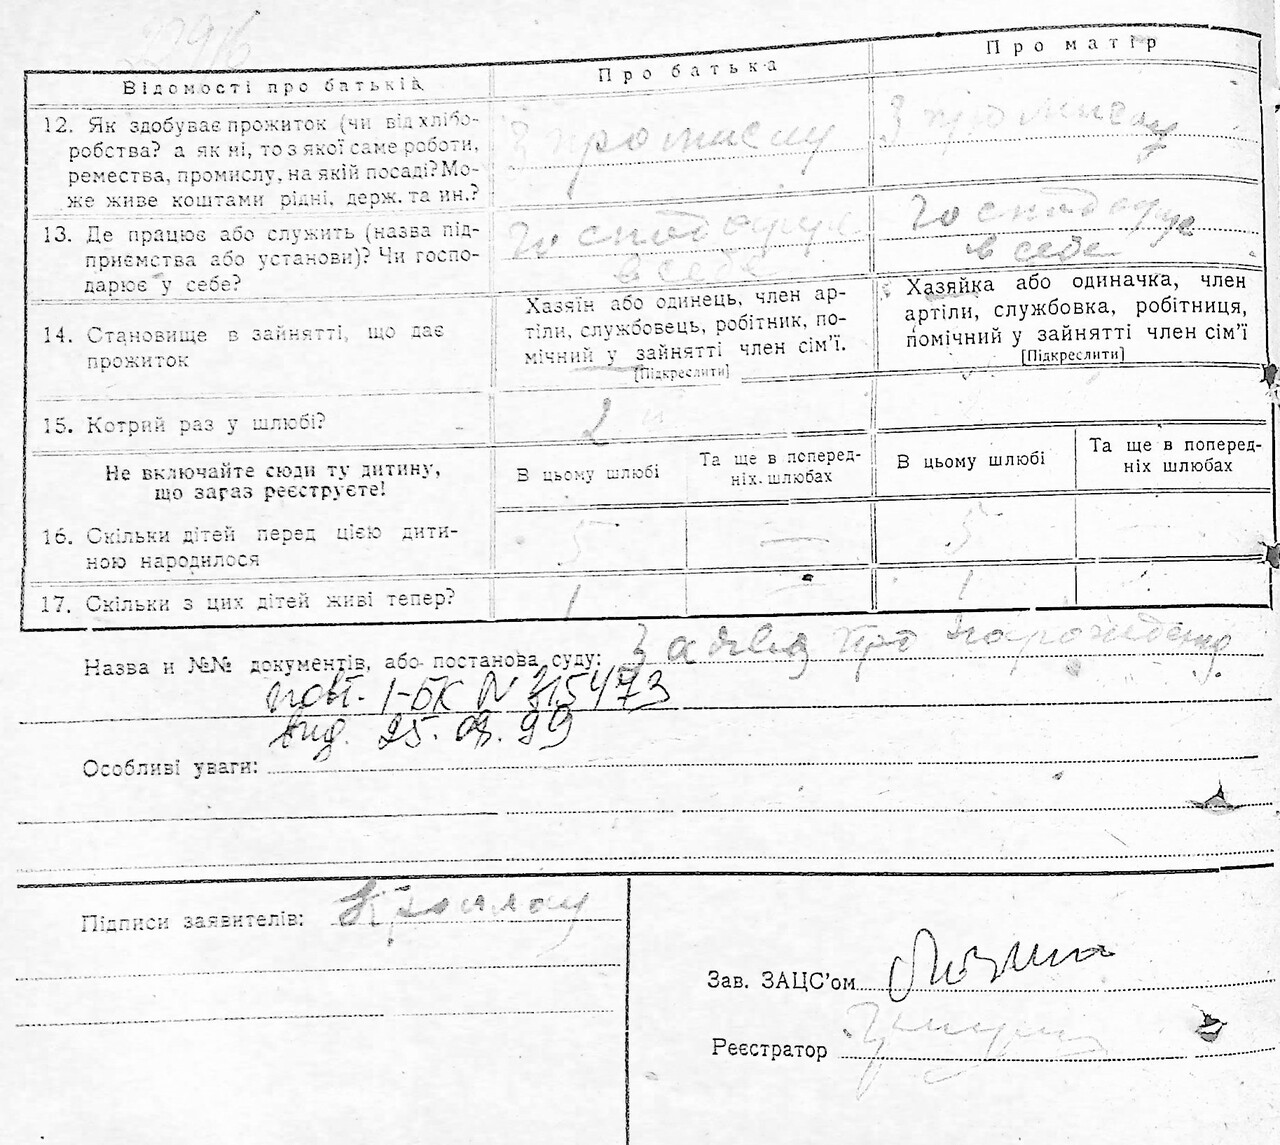 22916
Відомості про батьків
Про батька
Про матір
12. Як здобуває прожиток (чи від хлібо-
робства? а як ні, то з якої саме роботи,
ремества, промислу, на якій посаді? Мо-
же живе коштами рідні, держ. та ин.?
З промислу
З промислу
13. Де працює або служить (назва під-
приємства або установи)? Чи госпо-
дарює у себе?
Господарує
в себе
Господарує
в себе
14. Становище в зайнятті, що дає
прожиток
Хазяїн або одинець, член ар-
тіли, службовець, робітник, по-
мічний у зайнятті член сім'ї.
[Підкреслити]
Хазяйка або одиначка, член
артіли, службовка, робітниця,
помічний у зайнятті член сім'ї
[Підкреслити]
15. Котрий раз у шлюбі?
2
Не включайте сюди ту дитину,
що зараз реєструєте!
В цьому шлюбі
Та ще в поперед-
ніх шлюбах
В цьому шлюбі
Та ще в поперед-
ніх шлюбах
16. Скільки дітей перед цією дити-
ною народилося
5
—
5
17. Скільки з цих дітей живі тепер?
1
—
1
Назва и №№ документів, або постанова суду: Заява про народження
повт. І-БК N 315473
вид. 25. 08. 99
Особливі уваги:
Підписи заявителів:
Зав. ЗАЦС'ом
Реєстратор